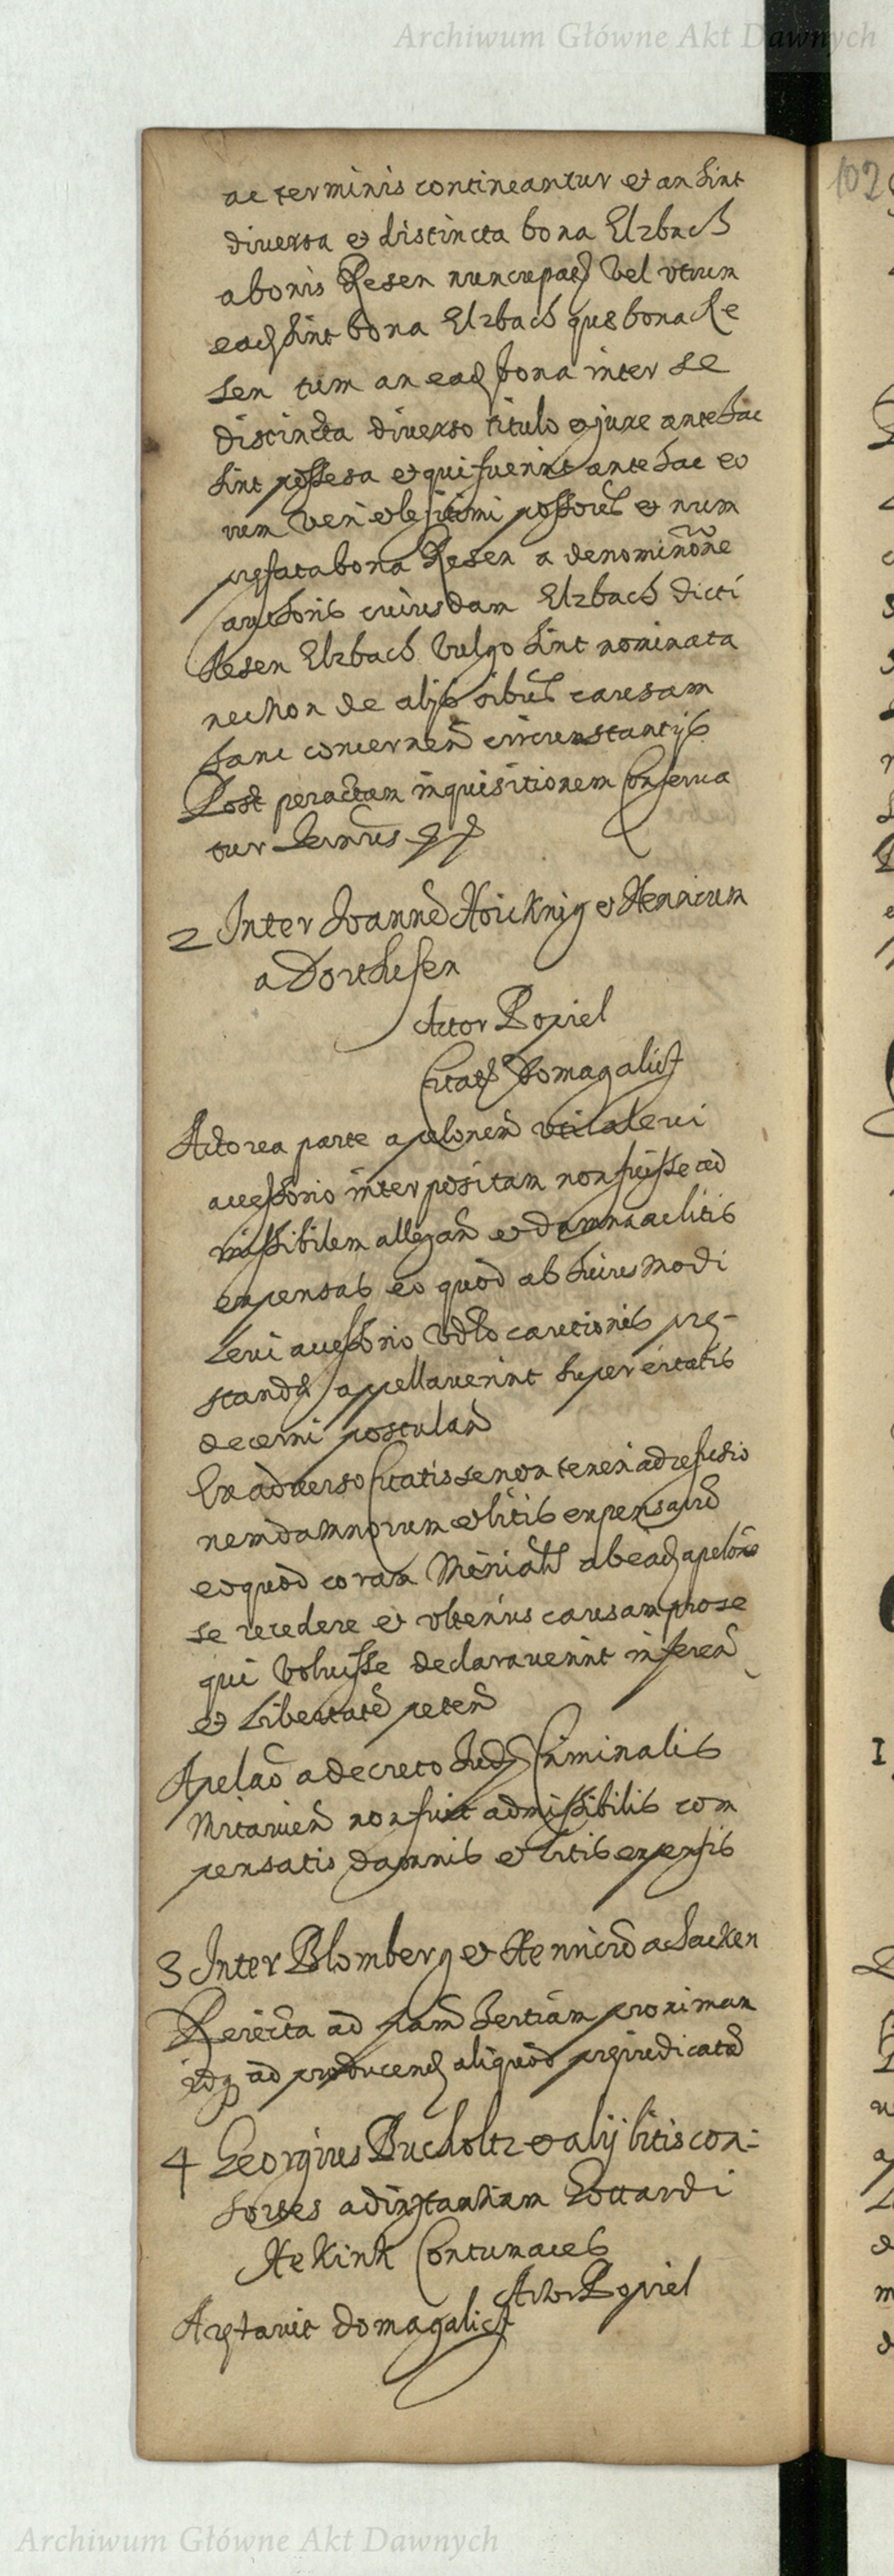 Archiwum Główne Akt Dawnych
102
ac terminis contineantur et an sint
diversa et distincta bona Elzbach
a bonis Resen nuncupat vel utrum
ead sint bona Elzbach quę bona Re
sen tum an ead bona inter se
distincta diverso titulo et jure antehac
sint possessa et qui fuerint antehac eo
rum veri et legitimi possores et num
pręfata bona Resen a denominone
authoris cuiusdam Elzbach dicti
Resen Elzbach vulgo sint nominata
nec non de alijs oibus causam
hanc concernen circumstantijs
Post peractam inquisitionem conserva
tur terminus
2 Inter Joannem Hoicknig et Henricum
a Dorthesen
Actor Popiel
Citat Domagalicz
Actorea parte apelonem uti a levi
accessorio interpositam non fuisse ad
missibilem allegan et damna ac litis
expensas eo quod ab huiusmodi
levi accessorio vdlo cautionis prę-
standę appellaverint super citatis
decerni postulan
Ex adverso citatis se non teneri ad refusio
nem damnorum et litis expensaru
eo quod coram Mtri ab ead apelone
se recedere et ulterius causam prose
qui voluisse declaraverint inferen
et libertate peten
Apelao a decreto Judy Criminalis
Mitavien non fuit admissibilis com
pensatis damnis et litis expensis
3 Inter Blomberg et Henricu a Sacken
Reiecta ad feriam tertiam proximam
idq ad producend aliquod pręiudicatu
4 Georgius Bucholtz et alij litis con-
sortes ad instantiam Gottardi
Hekink Contumaces
Actor Popiel
Arestavit Domagalicz
Archiwum Główne Akt Dawnych